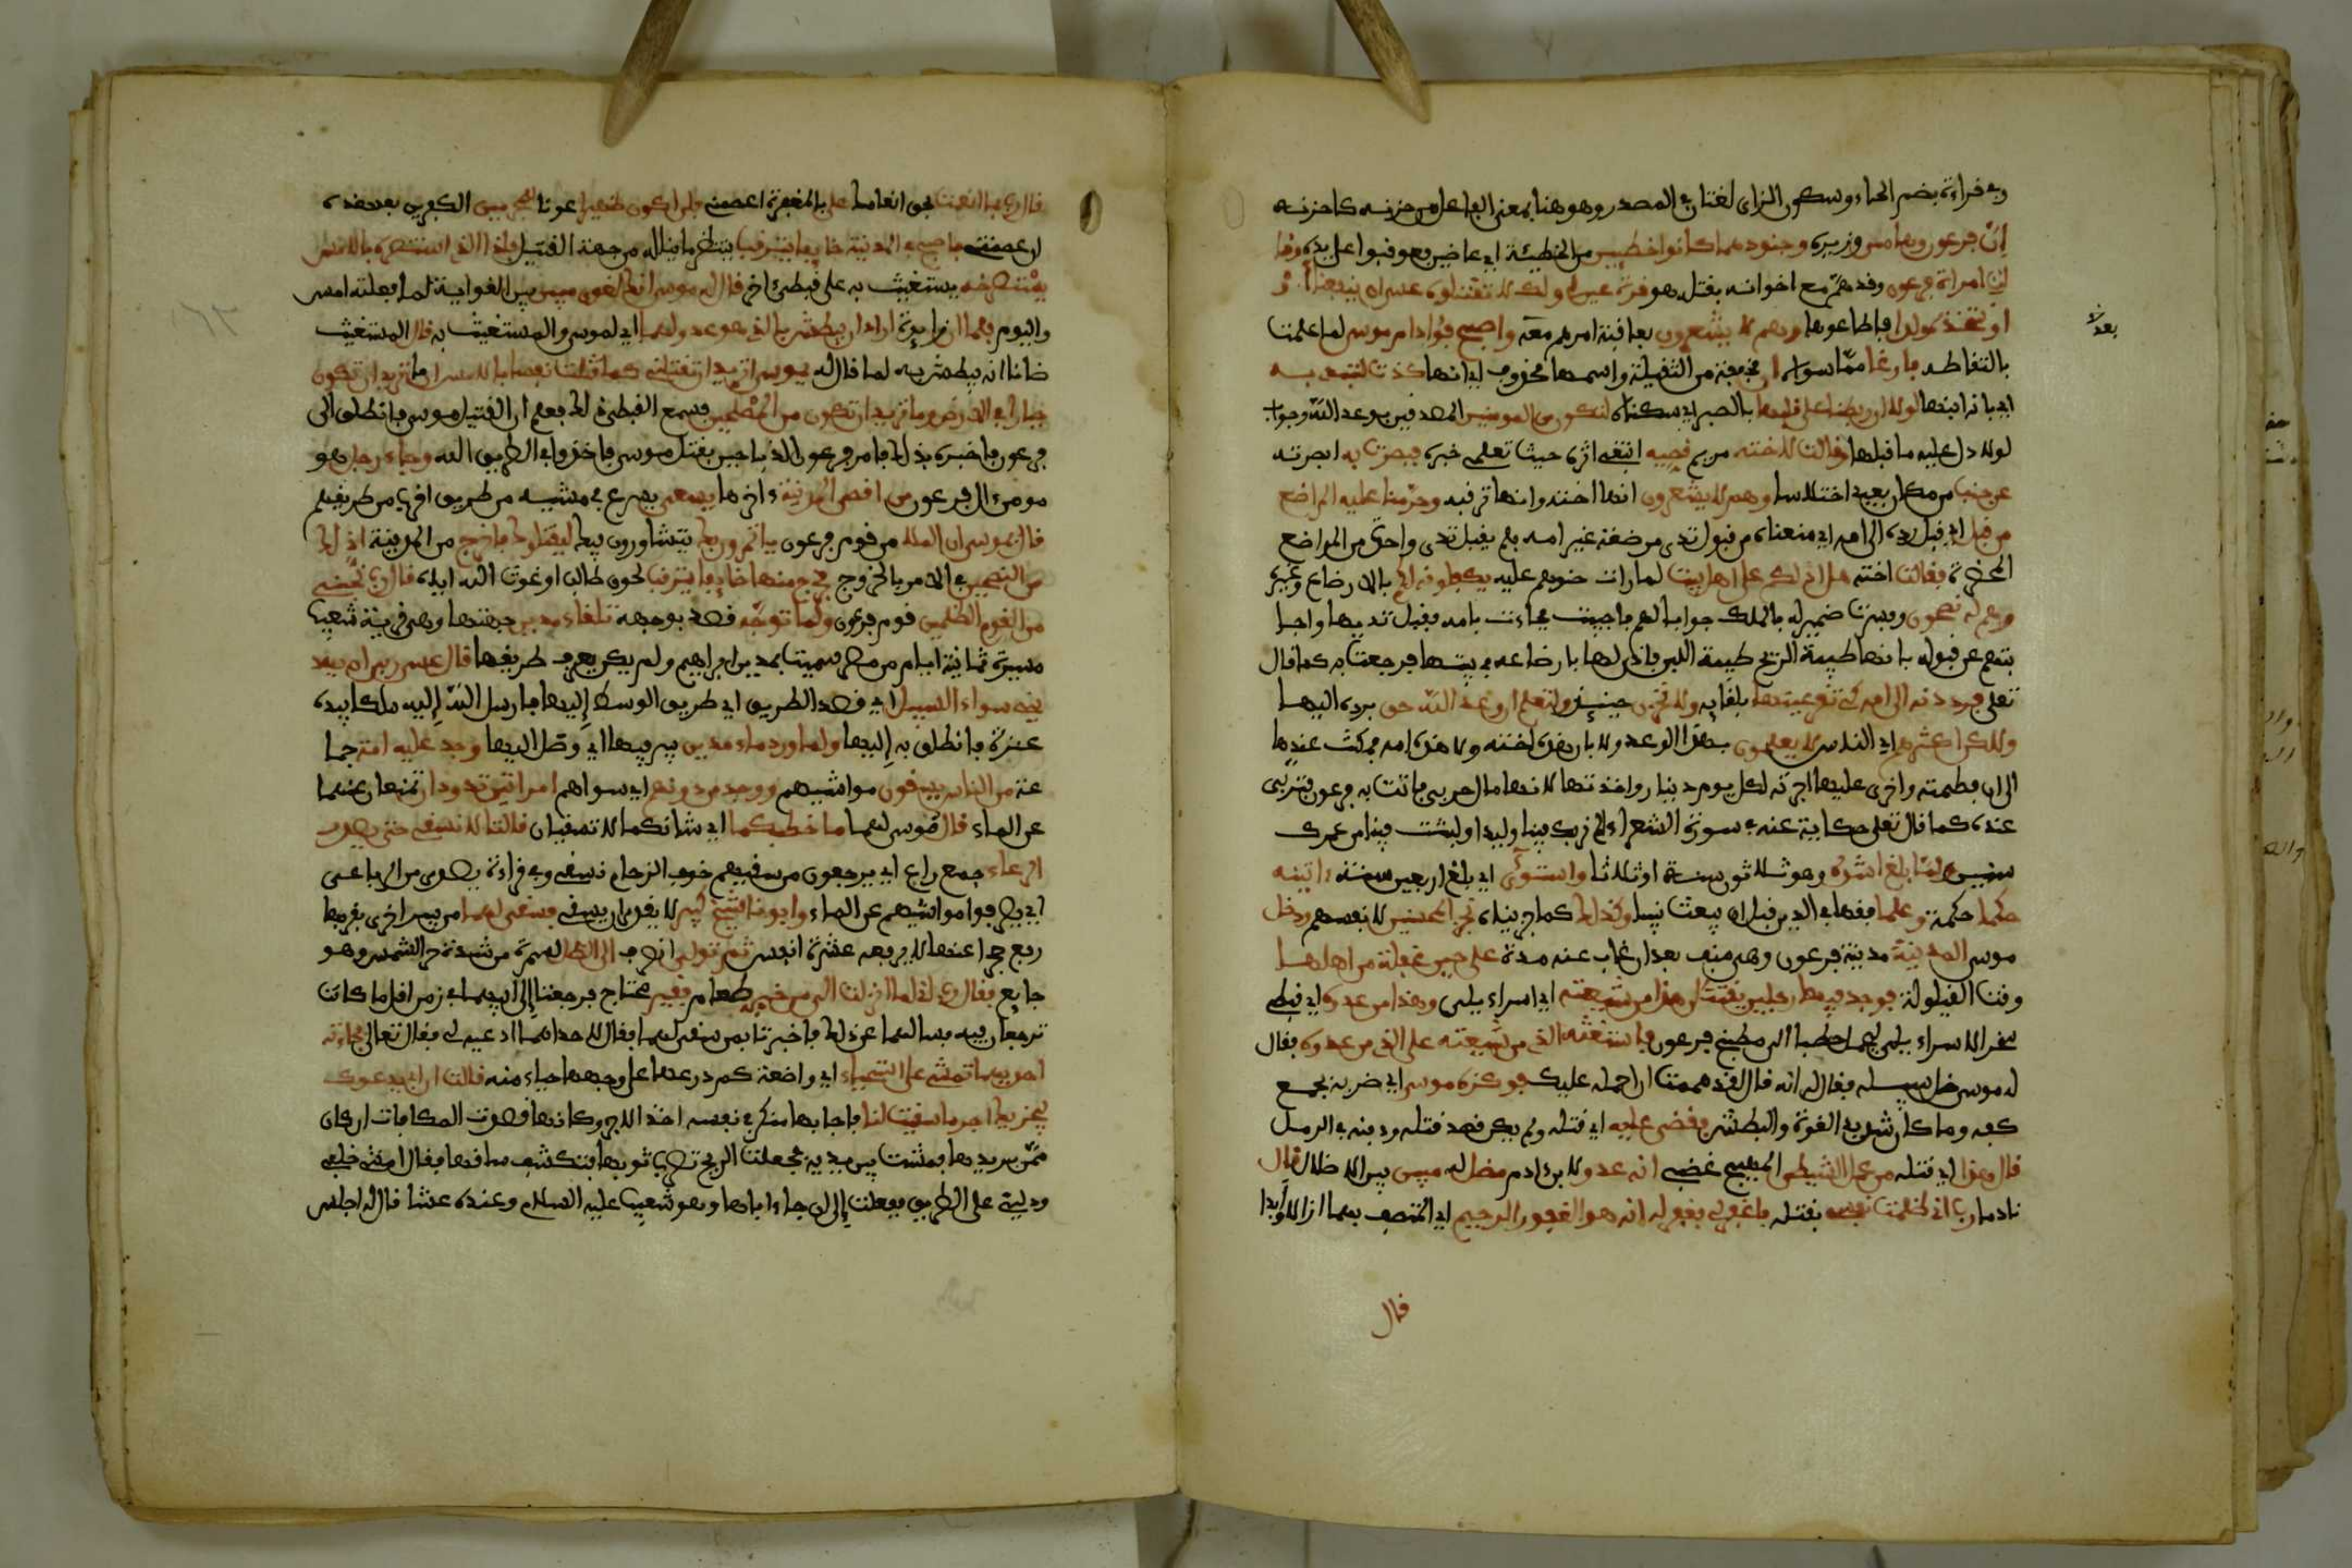 وفي قراءة بضم الحاء وسكون الزاي لغتان في المصدر وهو هنا بمعنى الفاعل من حزنه كأحزنه
إن فرعون وهامان وزيره وجنودهما كانوا خطيين من الخطيئة أي عاصين فعوقبوا على يديه وقا
لت امرأة فرعون وقد هم مع أعوانه بقتله هو قرة عين لي ولك لا تقتلوه عسى أن ينفعنا
أو نتخذه ولدا فأطاعوها وهم لا يشعرون بعاقبة أمرهم معه وأصبح فؤاد أم موسى لما علمت
بعد
بالتقاطه فارغا مما سواه إن مخففة من الثقيلة واسمها محذوف أي إنها كادت لتبدي به
أي بأنه ابنها لولا أن ربطنا على قلبها بالصبر أي سكناه لتكون من المومنين المصدقين بوعد الله وجواب
لولا دل عليه ما قبلها وقالت لأخته مريم قصيه اتبعي أثره حيث تعلمي خبره فبصرت به أبصرته
عن جنب من مكان بعيد اختلاسا وهم لا يشعرون أنها أخته وأنها ترقبه وحرمنا عليه المراضع
من قبل أي قبل رده إلى أمه أي منعناه من قبول ثدي مرضعة غير أمه فلم يقبل ثدي واحدة من المراضع
المحضرة فقالت أخته هل أدلكم على أهل بيت لما رأت حنوهم عليه يكفلونه لكم بالارضاع وغيره
وهم له نصحون وفسرت ضمير له بالملك جوابا لهم فأجيبت فجاءت بأمه فقبل ثديها وأجا
بتهم عن قبوله بأنها طيبة الريح طيبة اللبن فأذن لها بارضاعه في بيتها فرجعت به كما قال
تعلى فرددنه إلى أمه كي تقر عينها بلقايه ولا تحزن حينئذ ولتعلم أن وعد الله حق برده إليها
ولكن أكثرهم أي الناس لا يعلمون بهذا الوعد ولا بأن هذه أخته وهذه أمه فمكث عندها
إلى أن فطمته وأجرى عليها أجرته لكل يوم دينار وأخذتها لأنها مال حربي فأتت به فرعون فتربى
عنده كما قال تعلى حكاية عنه في سورة الشعراء ألم نربك فينا وليدا ولبثت فينا من عمرك
سنين ولما بلغ أشده وهو ثلاثون سنة أو ثلاثا واستوى أي بلغ أربعين سنة آتينه
حكما حكمة وعلما فقها في الدين قبل أن يبعث نبيا وكذلك كما جزيناه نجزي المحسنين لأنفسهم ودخل
موسى المدينة مدينة فرعون وهي منف بعد أن غاب عنه مدة على حين غفلة من أهلها
وقت القيلولة فوجد فيها رجلين يقتتلان هذا من شيعته أي اسراءيلي وهذا من عدوه أي قبطي
يسخر الاسراءيلي ليحمل حطبا إلى مطبخ فرعون فاستغثه الذي من شيعته على الذي من عدوه فقال
له موسى خل سبيله فقال له إنه قال لقد هممت أن أحمله عليك فوكزه موسى أي ضربه بجمع
كفه وما كان شديد القوة والبطش فقضى عليه أي قتله ولم يكن قصد قتله ودفنه في الرمل
قال هذا أي قتله من عمل الشيطن المهيج غضبي إنه عدو لابن ءادم مضل له مبين بين الاضلال قال
نادما رب إني ظلمت نفسي بقتله فاغفر لي فغفر له إنه هو الغفور الرحيم أي المتصف بهما أزلا وأبدا
قال
قال رب بما أنعمت بحق انعامك علي بالمغفرة اعصمني فلن أكون ظهيرا عونا للمجرمين الكفرين بعد هذه
إن عصمتني فأصبح في المدينة خايفا يترقب ينتظر ما يناله من جهة القتيل فإذا الذي استنصره بالامس
يستصرخه يستغيث به على قبطي ءاخر قال له موسى إنك لغوي مبين بين الغواية لما فعلته أمس
واليوم فلما أن زايدة أراد أن يبطش بالذي هو عدو لهما أي لموسى والمستغيث به قال المستغيث
ظانا أنه يبطش به لما قال له يموسى أتريد أن تقتلني كما قتلت نفسا بالامس إن ما تريد إلا أن تكون
جبارا في الارض وما تريد أن تكون من المصلحين فسمع القبطي ذلك فعلم أن القتيل موسى فانطلق إلى
فرعون فأخبره بذلك فأمر فرعون الذباحين بقتل موسى فأخذوا في الطريق إليه وجاء رجل هو
مومن ءال فرعون من أقصى المدينة ءاخرها يسعى يسرع في مشيه من طريق أقرب من طريقهم
قال يموسى إن الملا من قوم فرعون يأتمرون بك يتشاورون فيك ليقتلوك فاخرج من المدينة إني لك
من النصحين في الامر بالخروج فخرج منها خايفا يترقب لحوق طالب أو غوث الله إياه قال رب نجني
من القوم الظلمين قوم فرعون ولما توجه قصد بوجهه تلقاء مدين جهتها وهي قرية شعيب
مسيرة ثمانية أيام من مصر سميت بمدين ابن ابراهيم ولم يكن يعرف طريقها قال عسى ربي أن يهد
يني سواء السبيل أي قصد الطريق أي طريق الوسط إليها فأرسل الله إليه ملكا بيده
عنزة فانطلق به إليها ولما ورد ماء مدين بير فيها أي وصل إليها وجد عليه أمة جما
عة من الناس يسقون مواشيهم ووجد من دونهم أي سواهم امرأتين تذودان تمنعان غنمهما
عن الماء قال موسى لهما ما خطبكما أي شأنكما لا تسقيان قالتا لا نسقي حتى يصدر
الرعاء جمع راع أي يرجعون من سقيهم خوف الزحام فنسقي وفي قراءة يصدر من الرباعي
أي يصرفوا مواشيهم عن الماء وأبونا شيخ كبير لا يقدر أن يسقي فسقى لهما من بير أخرى بقربها
رفع حجرا عنها لا يرفعه إلا عشرة أنفس ثم تولى انصرف إلى الظل لسمرة من شدة حر الشمس وهو
جايع فقال رب إني لما أنزلت إلي من خير طعام فقير محتاج فرجعتا إلى أبيهما في زمن أقل مما كانتا
ترجعان فيه فسألهما عن ذلك فأخبرتاه بمن سقى لهما فقال لاحداهما ادعيه لي فقال تعالى فجاءته
احديهما تمشي على استحياء أي واضعة كم درعها على وجهها حياء منه قالت إن أبي يدعوك
ليجزيك أجر ما سقيت لنا فأجابها منكرا في نفسه أخذ الاجرة وكأنها قصدت المكافات إن كان
ممن يريدها فمشت بين يديه فجعلت الريح تضرب ثوبها فتكشف ساقها فقال امشي خلفي
ودليني على الطريق ففعلت إلى أن جاء أباها وهو شعيب عليه السلام وعنده عشا قال له اجلس